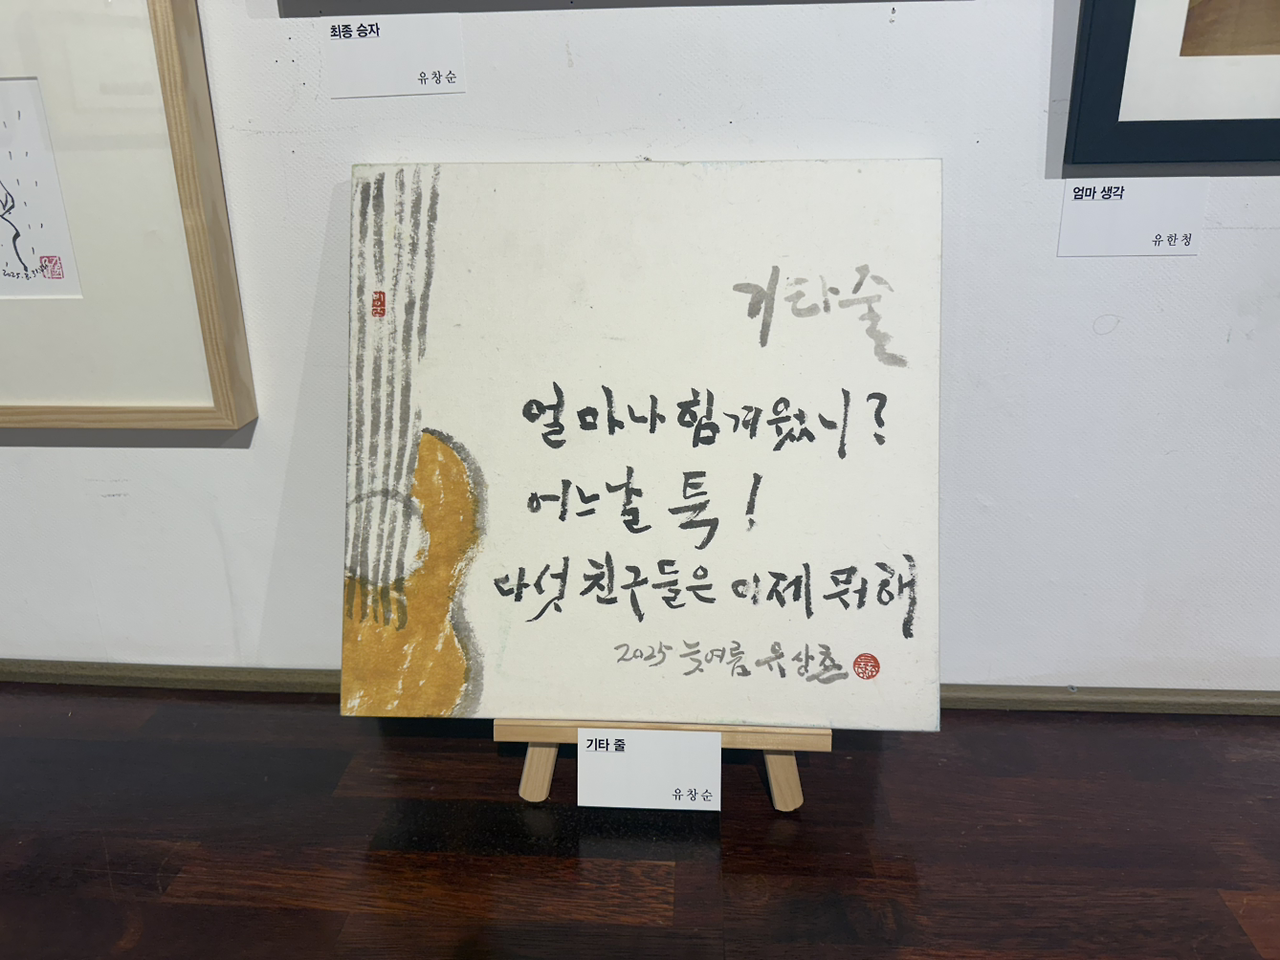 최종 승자
유창순
엄마 생각
유한청
기타줄
얼마나 힘겨웠니?
어느날 툭!
다섯 친구들은 이제 뭐해
2025 늦여름 유상
기타 줄
유창순